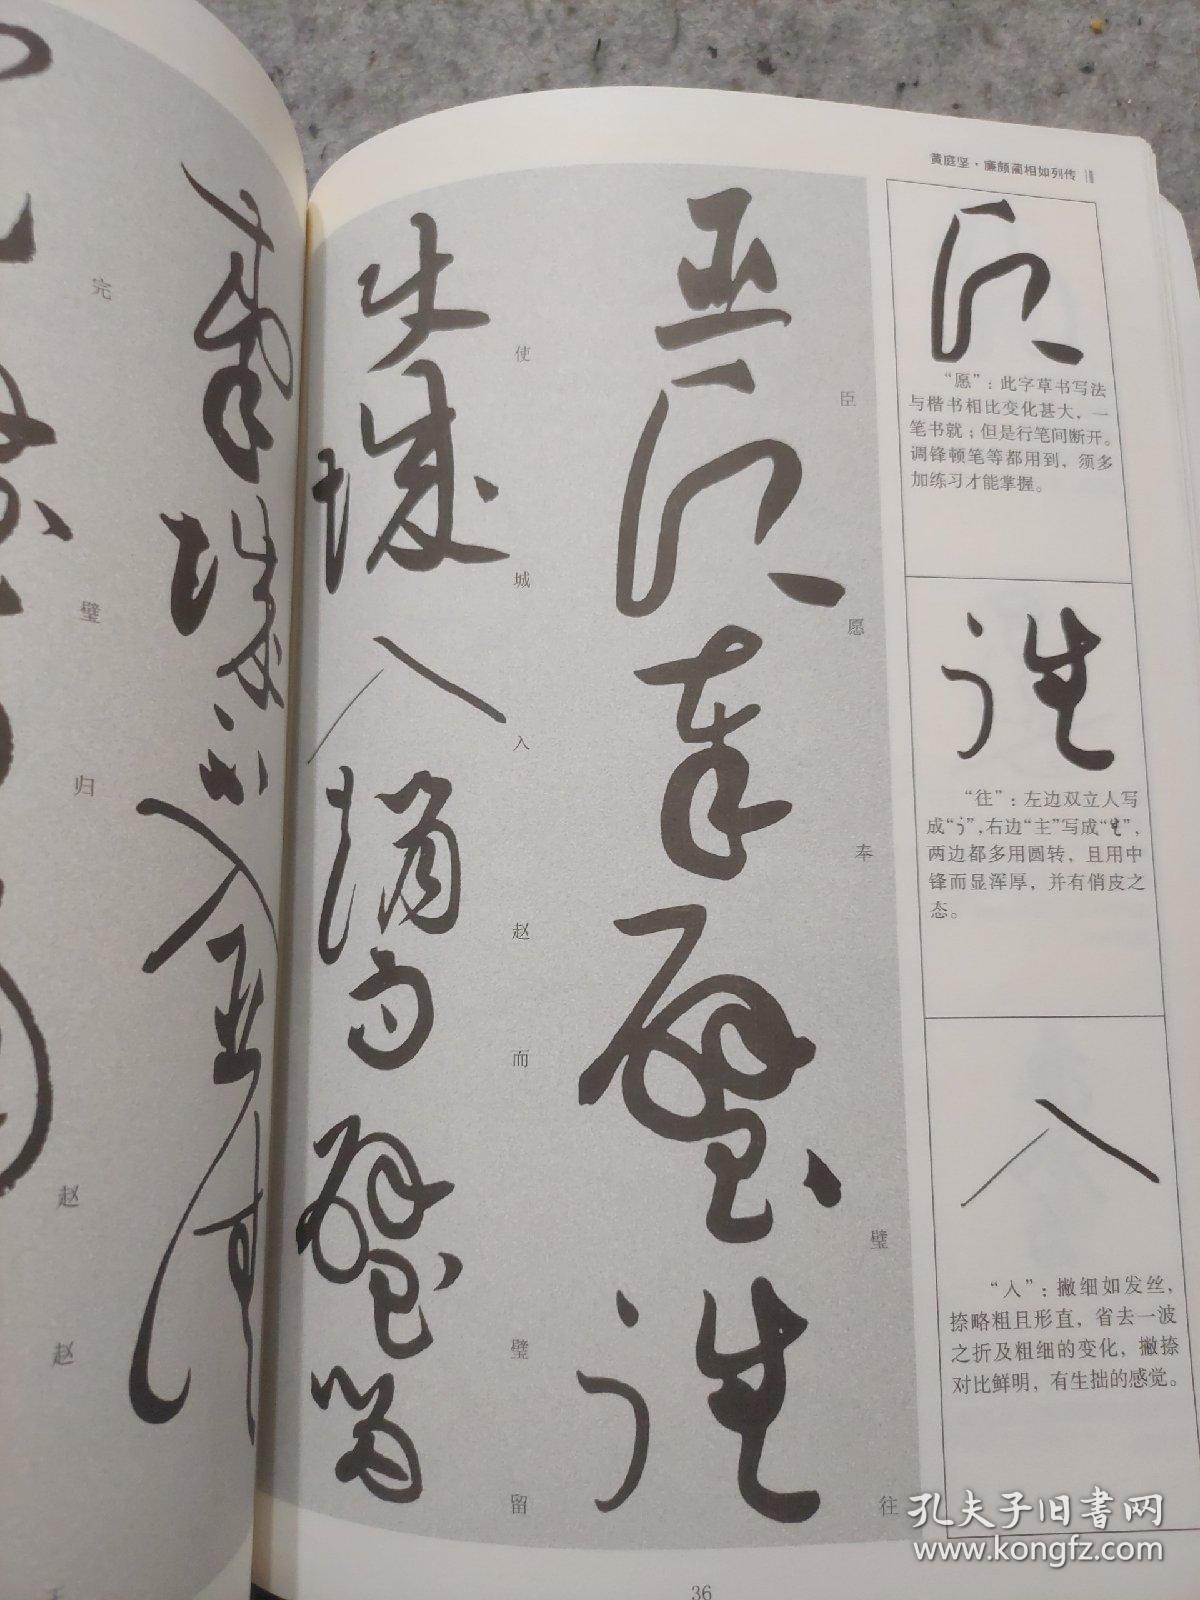 黄庭坚·廉颇蔺相如列传
臣愿奉璧往
使城入赵而璧留
“愿”：此字草书写法
与楷书相比变化甚大，一
笔书就；但是行笔间断开。
调锋顿笔等都用到，须多
加练习才能掌握。
往
“往”：左边双立人写
成“彳”，右边“主”写成“㞷”，
两边都多用圆转，且用中
锋而显浑厚，并有俏皮之
态。
入
“入”：撇细如发丝，
捺略粗且形直，省去一波
之折及粗细的变化，撇捺
对比鲜明，有生拙的感觉。
臣
愿
奉
璧
往
使
城
入
赵
而
璧
留
完
璧
归
赵
赵
王
36
孔夫子旧书网
www.kongfz.com